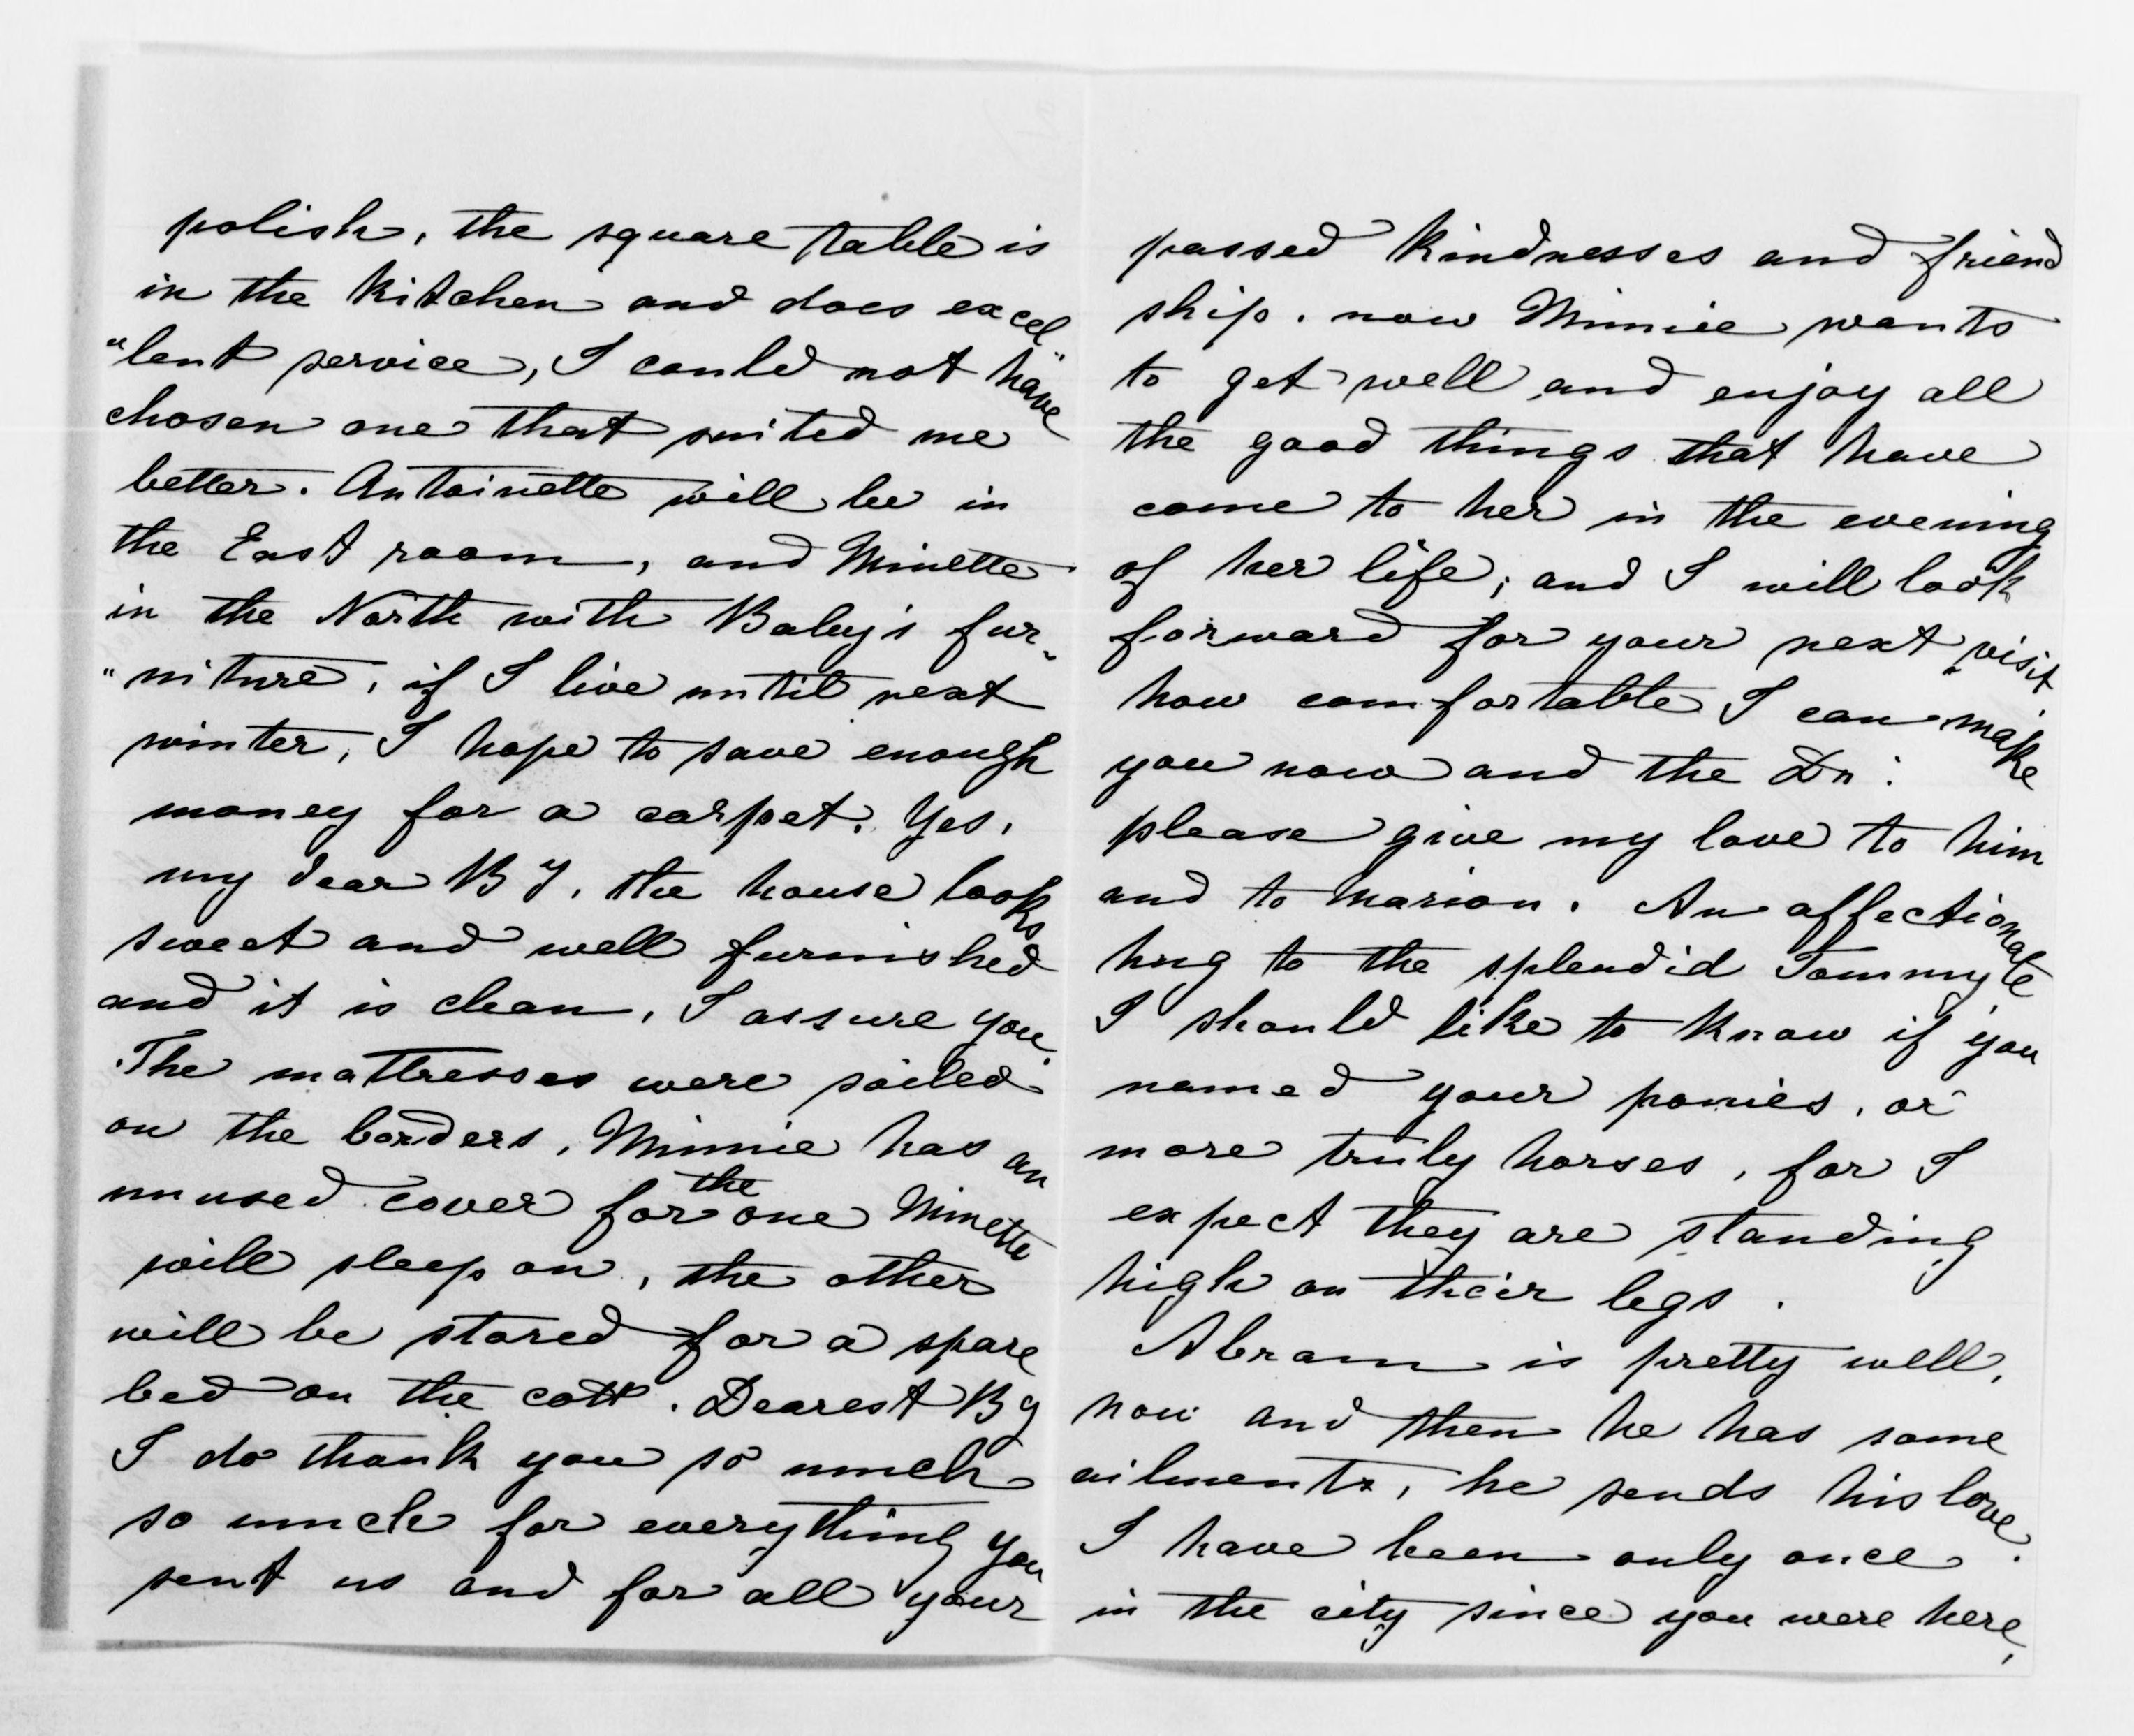 polish, the square table is
in the kitchen and does excel„
"lent service, I could not have
chosen one that suited me
better. Antoinette will be in
the East room, and Minette
in the North with Baby's fur„
"niture, if I live until next
winter, I hope to save enough
money for a carpet. Yes,
my dear BY, the house looks
sweet and well furnished
and it is clean, I assure you.
The mattresses were soiled
on the borders, Minnie has an
unused cover for the one Minette
will sleep on, the other
will be stored for a spare
bed on the cott. Dearest By
I do thank you so much
so much for everything you
sent us and for all your
passed kindnesses and friend
ship. now Minnie wants
to get well and enjoy all
the good things that have
come to her in the evening
of her life, and I will look
forward for your next visit
how comfortable I can make
you now and the Dr:
please give my love to him
and to Marion. An affectionate
hug to the splendid Tommy
I should like to know if you
named your ponies, or
more truly horses, for I
expect they are standing
high on their legs.
Abram is pretty well,
now and then he has some
ailments, he sends his love.
I have been only once
in the city since you were here,